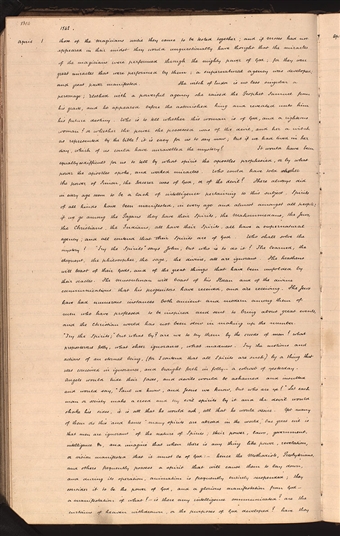 1842.
April 1
those of the magicians until they came to be tested together, and if Moses had not
appeared in their midst they would unquestionably have thought that the miracles
of the magicians were performed through the mighty power of God; for they were
great miracles that were performed by them; a supernatural agency was developed,
and great power manifested. The witch of Endor is no less singular a
personage; clothed with a powerful agency she raised the Prophet Samuel from
his grave, and he appeared before the astonished king and revealed unto him
his future destiny. Who is to tell whether this woman is of God, and a righteous
woman? or whether the power she possessed was of the devil, and her a witch
as represented by the bible? it is easy for us to say now; but if we had lived in her
day, which of us could have unravelled the mystery? It would have been
equally as difficult for us to tell by what spirit the apostles prophesied, or by what
power the apostles spoke, and worked miracles. Who could have told whether
the power of Simon, the Sorcerer was of God, or of the devil? There always did
in every age seem to be a lack of intelligence pertaining to this subject. Spirits
of all kinds have been manifested, in every age and almost amongst all people,
if we go among the Pagans they have their Spirits, the Mahommedans, the Jews,
the Christians, the Indians, all have their Spirits, all have a supernatural
agency; and all contend that their Spirits are of God. Who shall solve the
mystery? "Try the Spirits" says John, but who is to do it? The learned, the
eloquent, the philosopher, the sage, the divine, all are ignorant. The heathens
will boast of their Gods; and of the great things that have been unfolded by
their oracles. The mussulman will boast of his Koran and of the divine
communications that his progenitors have received, and are receiving. The Jews
have had numerous instances both ancient and modern among them of
men who have professed to be inspired and sent to bring about great events
and the Christian world has not been slow in making up the number.
"Try the Spirits," but what by? are we to try them by the creeds of men? what
preposterous folly, what sheer ignorance, what madness. Try the motions and
actions of an eternal being, (for I contend that all Spirits are such) by a thing that
was conceived in ignorance, and brought forth in folly—a cobweb of yesterday.
Angels would hide their faces, and devils would be ashamed and insulted
and would say, "Paul we know, and Jesus we know, but who are ye?" Let each
man or society make a creed and try evil spirits by it and the devil would
shake his sides, it is all that he would ask, all that he would desire. Yet many
of them do this and hence "many spirits are abroad in the world," One great evil is
that men are ignorant of the nature of Spirits; their power, laws, government,
intelligence &c, and imagine that when there is any thing like power, revelation,
or vision manifested that it must be of God—hence the Methodists, Presbyterians,
and others frequently possess a spirit that will cause them to lay down,
and during its operation, animation is frequently entirely suspended; they
consider it to be the power of God, and a glorious manifestation from God—
a manifestation of what?—is there any intelligence communicated? are the
curtains of heaven withdrawn, or the purposes of God developed? have they